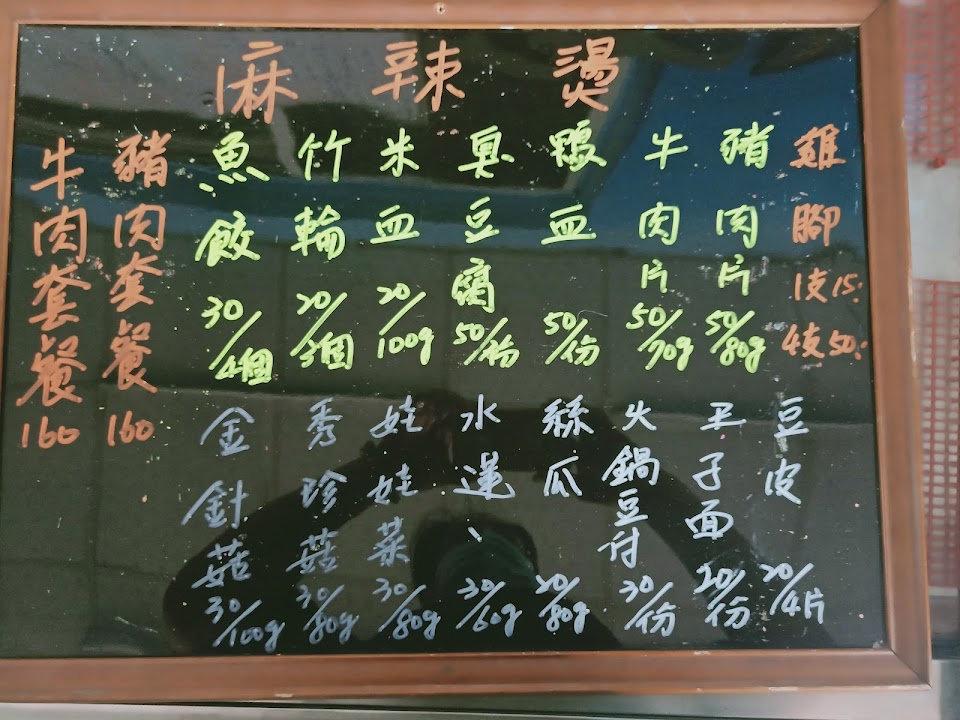 麻辣燙
雞腳 1支15. 4支50.
豬肉片 50/80g
牛肉片 50/70g
鴨血 50/份
臭豆腐 50/份
米血 20/100g
竹輪 20/3個
魚餃 30/4個
豆皮 20/4片
王子面 20/份
火鍋豆付 30/份
絲瓜 20/80g
水蓮 30/60g
娃娃菜 30/80g
秀珍菇 30/80g
金針菇 30/100g
豬肉套餐 160
牛肉套餐 160